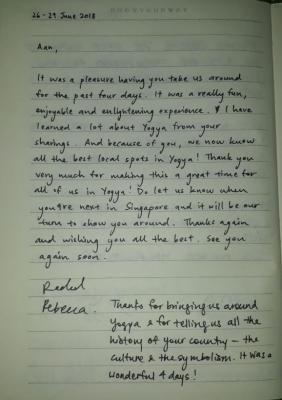 26 - 29 June 2018
Aan,
It was a pleasure having you take us around
for the past four days. It was a really fun,
enjoyable and enlightening experience. I have
learned a lot about Yogya from your
sharings. And because of you, we now know
all the best local spots in Yogya! Thank you
very much for making this a great time for
all of us in Yogya! Do let us know when
you are next in Singapore and it will be our
turn to show you around. Thanks again
and wishing you all the best. See you
again soon.
Rebecca.
Thanks for bringing us around
Yogya & for telling us all the
history of your country - the
culture & the symbolism. It was a
wonderful 4 days!